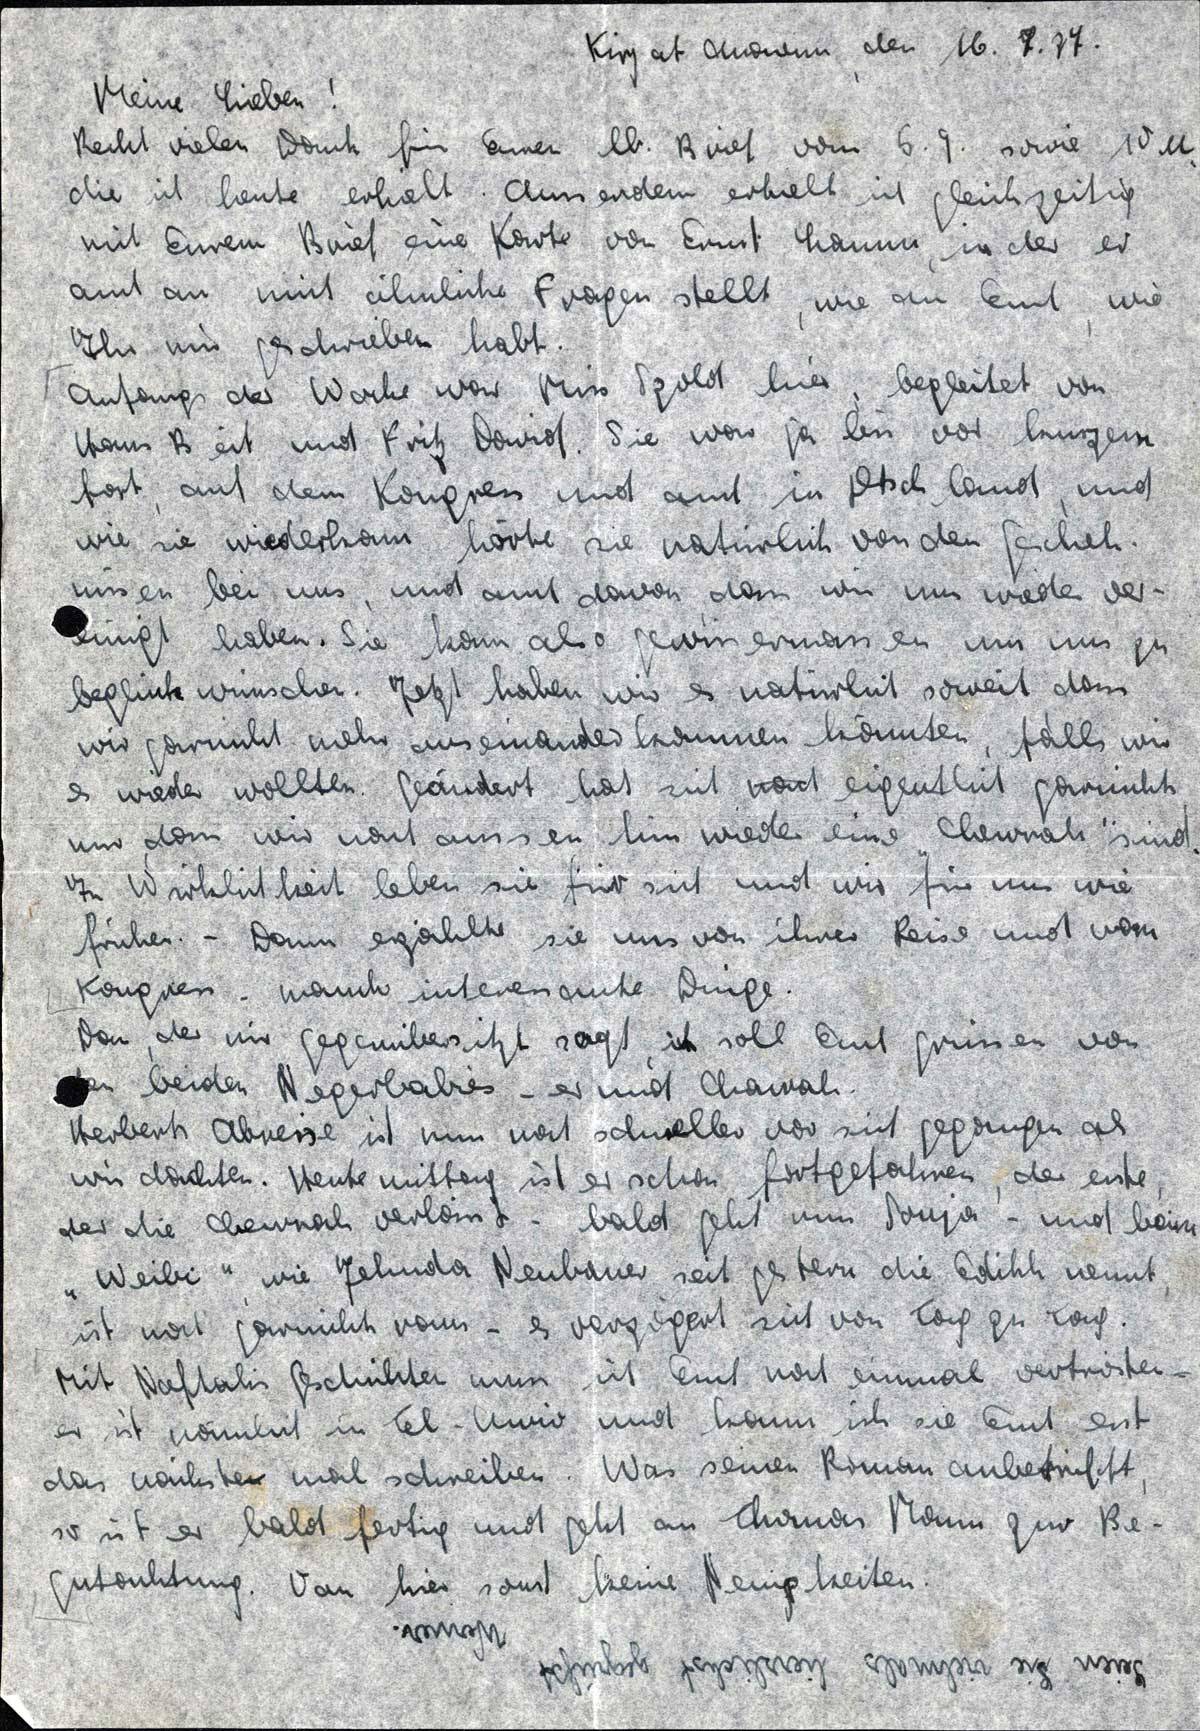 Kirjat Anavim, den 16. 9. 37.
Meine Lieben!
Recht vielen Dank für Euren lb. Brief vom 6. 9. sowie 10 M.
die ich heute erhielt. Ausserdem erhielt ich gleichzeitig
mit Eurem Brief eine Karte von Ernst, in der er
auch an mich ähnliche Fragen stellt, wie an Euch, wie
Ihr mir geschrieben habt.
Anfangs der Woche war Miss Szold hier, begleitet von
Hans Beit und Fritz David. Sie war ja bis vor kurzem
fort, auf dem Kongress und auch in Dtschland, und
wie sie wiederkam hörte sie natürlich von den Gescheh-
nissen bei uns, und auch davon dass wir uns wieder ver-
einigt haben. Sie kam also gewissermassen um uns zu
beglückwünschen. Jetzt haben wir es natürlich soweit dass
wir garnicht mehr auseinanderkommen könnten, falls wir
es wieder wollten. Geändert hat sich eigentlich garnichts
nur dass wir nach aussen hin wieder eine „Chewrah" sind.
In Wirklichkeit leben sie für sich und wir für uns wie
früher. - Dann erzählte sie uns von ihrer Reise und vom
Kongress - manch interessante Dinge.
Dan, der mir gegenübersitzt sagt, ich soll Euch grüssen von
den beiden Negerbabies - er und Chawah.
Herberts Abreise ist nun noch schneller vor sich gegangen als
wir dachten. Heute mittag ist er schon fortgefahren, der erste,
der die Chewrah verlässt - bald geht nun Sonja - und beim
„Weibi", wie Jehuda Neubauer seit gestern die Edith nennt,
ist noch garnichts raus - es verzögert sich von Tag zu Tag.
Mit Naftalis Geschichten muss ich Euch noch einmal vertrösten -
er ist nämlich in Tel-Awiw und kann ich sie Euch erst
das nächste mal schreiben. Was seinen Roman anbetrifft,
so ist er bald fertig und geht an Thomas Mann zur Be-
gutachtung. Von hier sonst keine Neuigkeiten.
Seien Sie vielmals herzlichst gegrüßt